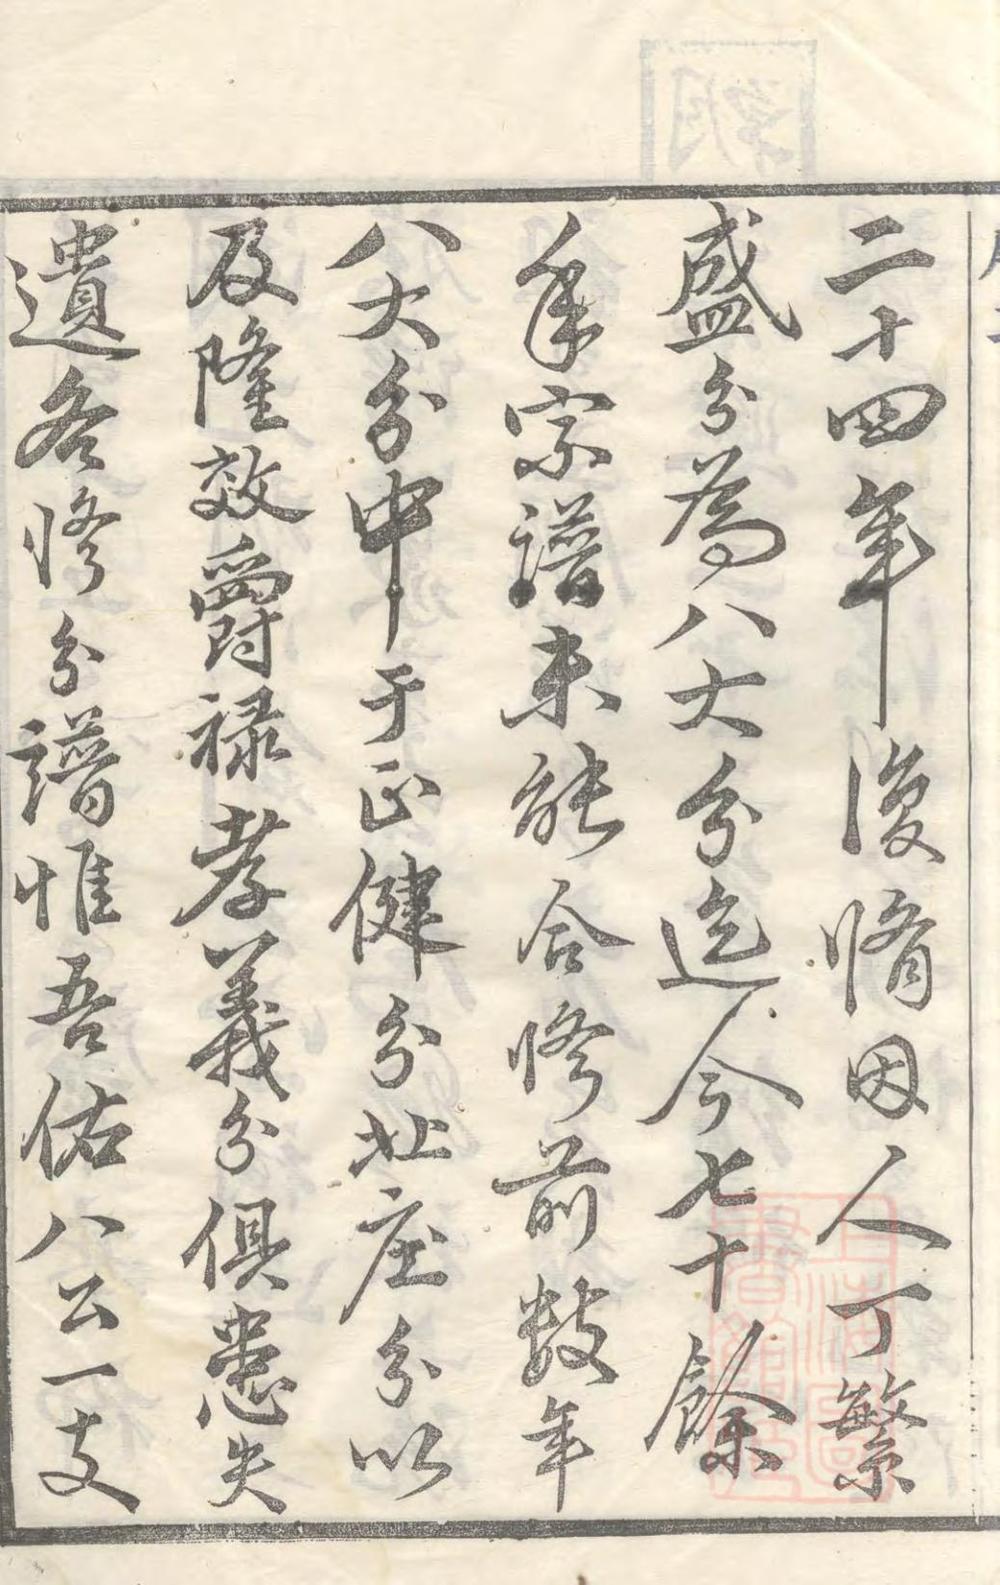 二十四年復脩因人丁繁
盛分為八大分迄今七十餘
年宗譜未能合修前數年
八大分中于正健分北庄分以
及隆效爵祿孝義分俱患失
遺各修分譜惟吾佑八公一支